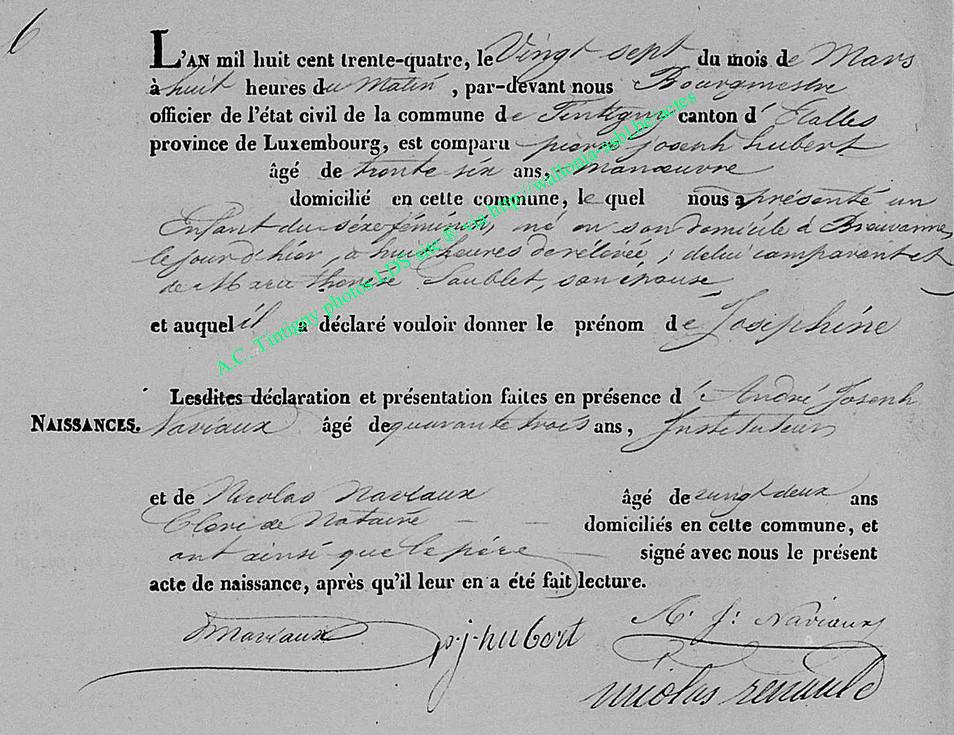 6
L'AN mil huit cent trente-quatre, le Vingt sept du mois de Mars
à huit heures du Matin, par-devant nous Bourgmestre
officier de l'état civil de la commune de Tintigny canton d'Etalles
province de Luxembourg, est comparu pierre Joseph hubert
âgé de trente six ans, manœuvre
domicilié en cette commune, le quel nous a présenté un
Enfant du séxe féminin, né en son domicile à Breuvanne
le jour d'hier, a huit heures de rélévée, de lui comparant et
de Marie thérèse Saublet, son épouse
et auquel il a déclaré vouloir donner le prénom de Joséphine
Lesdites déclaration et présentation faites en présence d'André Joseph
NAISSANCES. Naviaux âgé de quarante trois ans, Instituteur
et de Nicolas Naviaux âgé de vingt deux ans
Clerc de Notaire domiciliés en cette commune, et
ont ainsi que le père signé avec nous le présent
acte de naissance, après qu'il leur en a été fait lecture.
Naviaux p.j.hubert A. J. Naviaux
nicolas
A.C. Tintigny photos LDS site ® via http//wallonia-asbl.be/actes